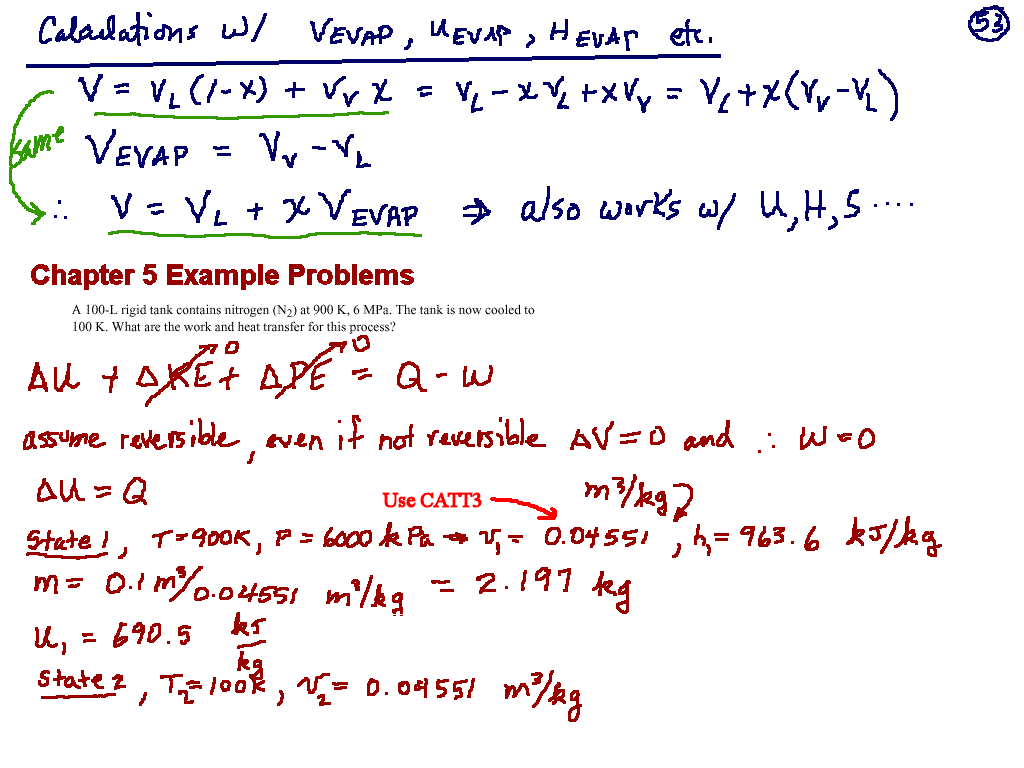 Calculations w/ V_EVAP, U_EVAP, H_EVAP etc. 53
V = V_L (1-x) + V_V x = V_L - x V_L + x V_V = V_L + x(V_V - V_L)
same
V_EVAP = V_V - V_L
∴ V = V_L + x V_EVAP ⇒ also works w/ U, H, S ....
Chapter 5 Example Problems
A 100-L rigid tank contains nitrogen (N₂) at 900 K, 6 MPa. The tank is now cooled to
100 K. What are the work and heat transfer for this process?
0 0
ΔU + ΔKE + ΔPE = Q - W
assume reversible, even if not reversible ΔV = 0 and ∴ W = 0
ΔU = Q
Use CATT3 m³/kg
State 1, T = 900K, P = 6000 kPa → v₁ = 0.04551, h₁ = 963.6 kJ/kg
m = 0.1 m³/0.04551 m³/kg = 2.197 kg
u₁ = 690.5 kJ/kg
State 2, T₂ = 100K, v₂ = 0.04551 m³/kg